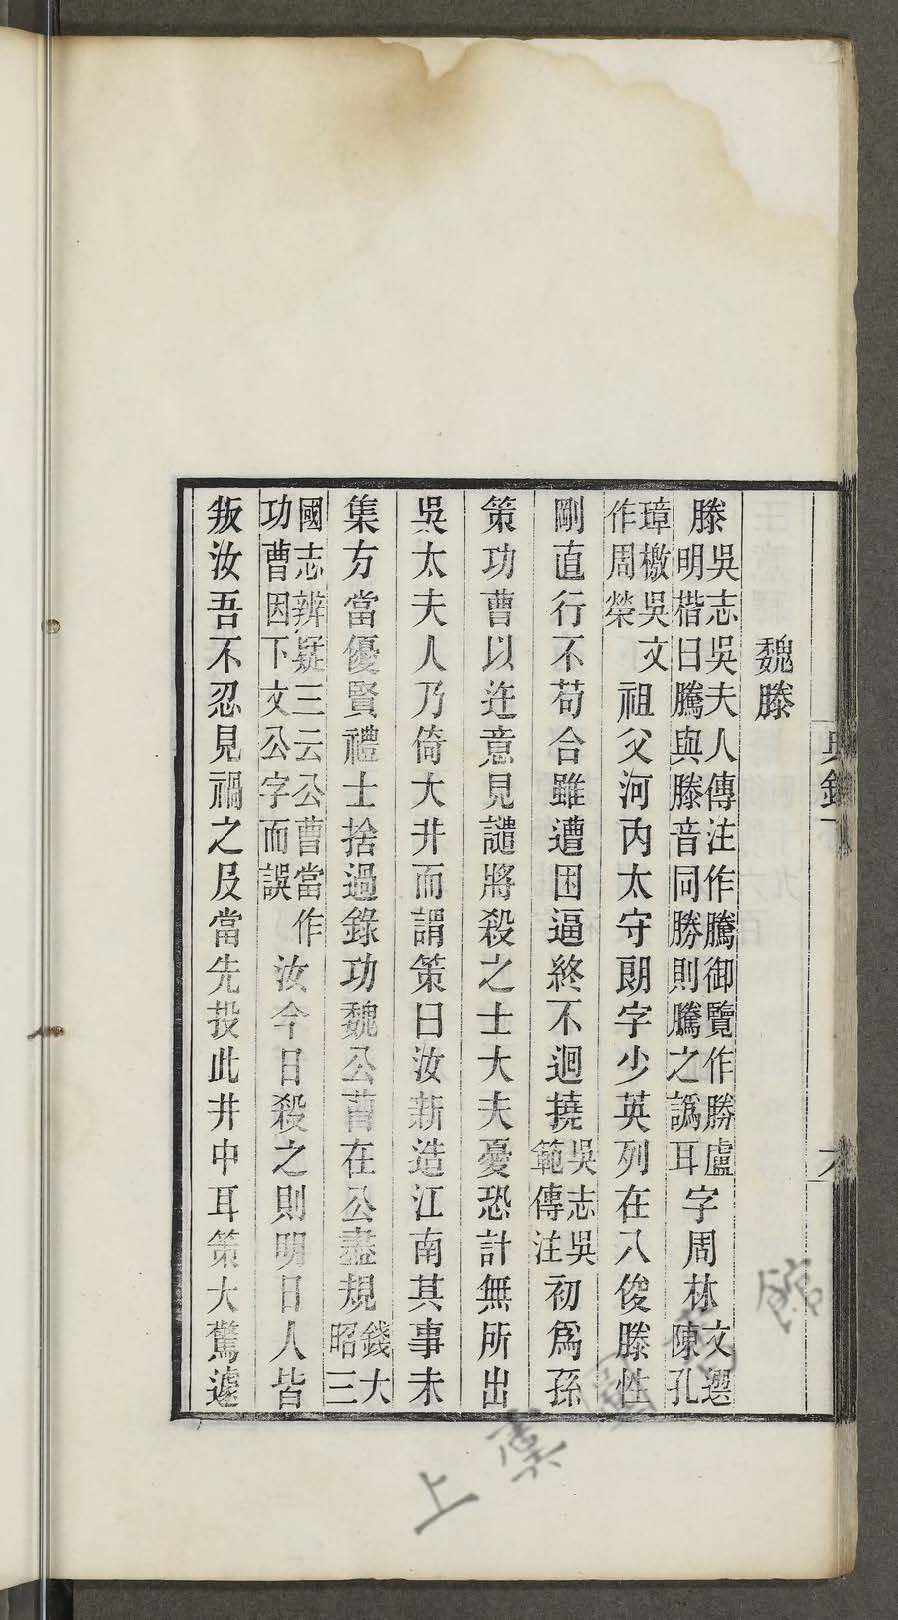 典錄下
魏滕
滕吳志吳夫人傳注作騰御覽作勝盧明楷曰騰與滕音同勝則騰之譌耳字周林文選陳孔
璋檄吳文作周榮祖父河內太守朗字少英列在八俊滕性
剛直行不苟合雖遭困逼終不迴撓吳志吳範傳注初爲孫
策功曹以迕意見譴將殺之士大夫憂恐計無所出
吳太夫人乃倚大井而謂策曰汝新造江南其事未
集方當優賢禮士捨過錄功魏公曹在公盡規錢大昭三
國志辨疑三云公曹當作功曹因下文公字而誤汝今日殺之則明日人皆
叛汝吾不忍見禍之及當先投此井中耳策大驚遽
上虞圖書館